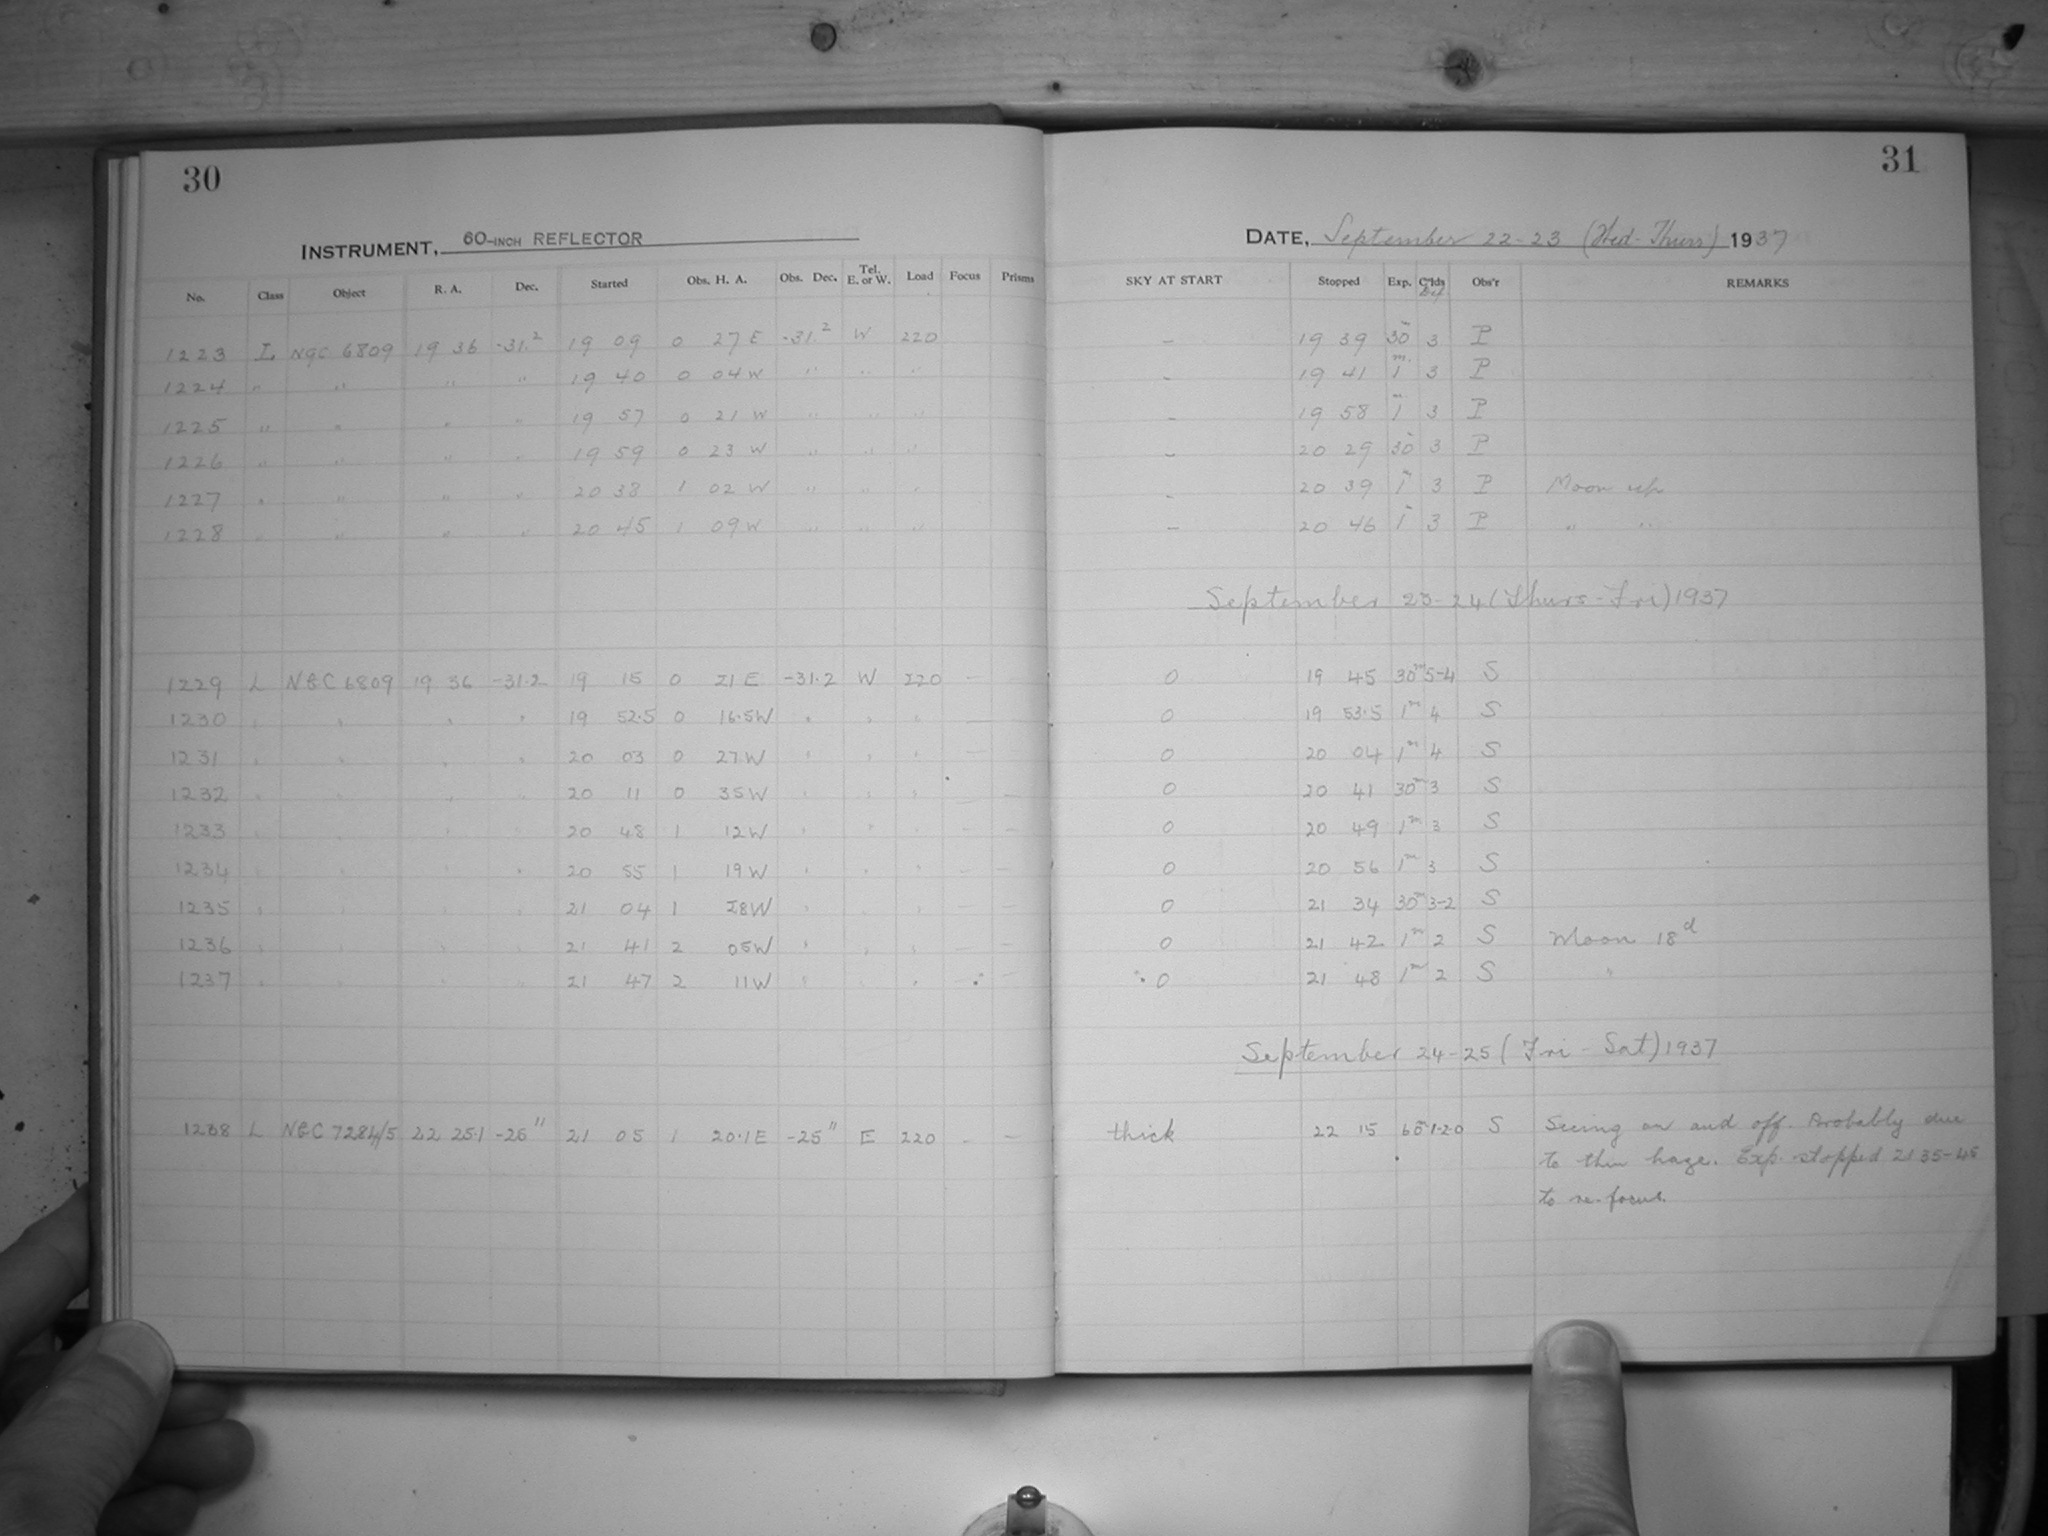 30
INSTRUMENT, 60-INCH REFLECTOR
No. Class Object R. A. Dec. Started Obs. H. A. Obs. Dec. Tel. E. or W. Load Focus Prisms
1223 L NGC 6809 19 36 -31.2 19 09 0 27 E -31.2 W 220
1224 " " " " 19 40 0 04 W " " "
1225 " " " " 19 57 0 21 W " " "
1226 " " " " 19 59 0 23 W " " "
1227 " " " " 20 38 1 02 W " " "
1228 " " " " 20 45 1 09 W " " "
1229 L NGC 6809 19 36 -31.2 19 15 0 21 E -31.2 W 220 -
1230 " " " " 19 52.5 0 16.5 W " " " -
1231 " " " " 20 03 0 27 W " " " -
1232 " " " " 20 11 0 35 W " " " - -
1233 " " " " 20 48 1 12 W " " " - -
1234 " " " " 20 55 1 19 W " " " - -
1235 " " " " 21 04 1 28 W " " " - -
1236 " " " " 21 41 2 05 W " " " - -
1237 " " " " 21 47 2 11 W " " " - -
1238 L NGC 7284/5 22 25.1 -25 " 21 05 1 20.1 E -25 " E 220 - -
31
DATE, September 22-23 (Wed-Thurs) 1937
SKY AT START Stopped Exp. Obs'r REMARKS
- 19 39 30m 3 P
- 19 41 1m 3 P
- 19 58 1m 3 P
- 20 29 30m 3 P
- 20 39 1m 3 P Moon up
- 20 46 1m 3 P " "
September 23-24 (Thurs-Fri) 1937
0 19 45 30m 5-4 S
0 19 53.5 1m 4 S
0 20 04 1m 4 S
0 20 41 30m 3 S
0 20 49 1m 3 S
0 20 56 1m 3 S
0 21 34 30m 3-2 S
0 21 42 1m 2 S Moon 18d
0 21 48 1m 2 S "
September 24-25 (Fri-Sat) 1937
thick 22 15 60m 1-20 S Seeing on and off. Probably due
to thin haze. Exp. stopped 21 35-45
to re-focus.